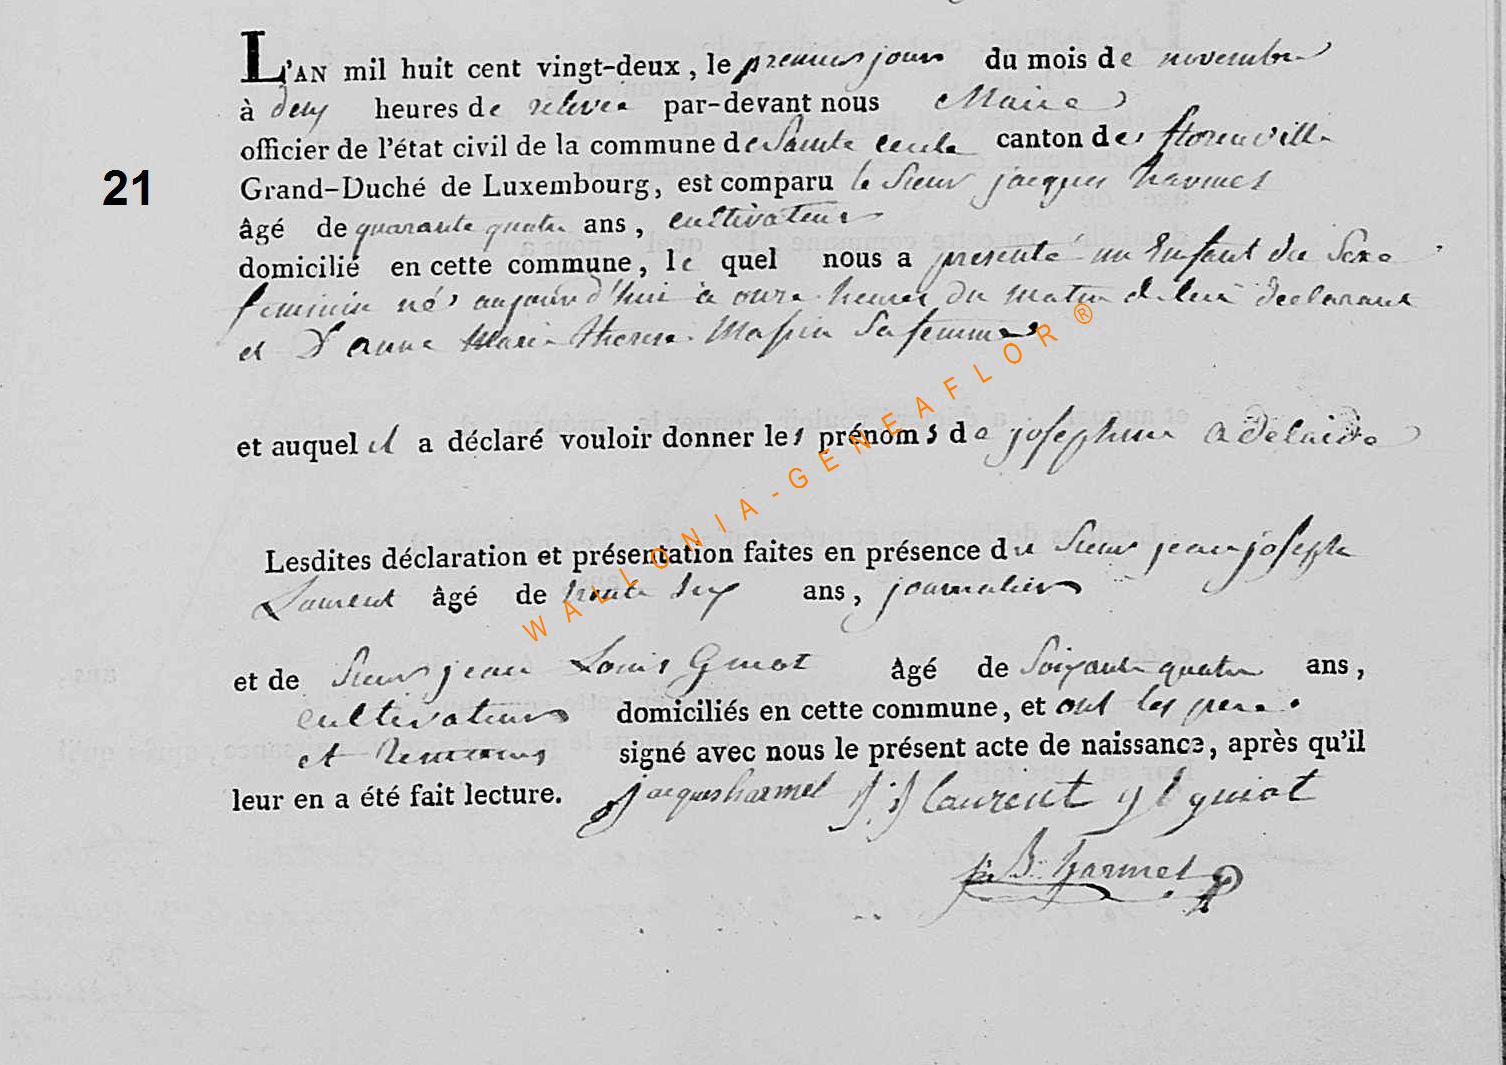 L'AN mil huit cent vingt-deux, le premier jour du mois de novembre
à deux heures de relevée par-devant nous Maire
officier de l'état civil de la commune de Sainte cecile canton de florenville
21
Grand-Duché de Luxembourg, est comparu le Sieur jacques harmel
âgé de quarante quatre ans, cultivateur
domicilié en cette commune, le quel nous a presenté un Enfant du Sexe
feminin né aujourd'hui à onze heures du matin de lui declarant
et D'anne Marie Therese Massin Sa femme
et auquel il a déclaré vouloir donner les prénoms de josephine adelaide
Lesdites déclaration et présentation faites en présence du Sieur jean joseph
Laurent âgé de trente six ans, journalier
et de Sieur jean Louis Guiot âgé de Soixante quatre ans,
cultivateur domiciliés en cette commune, et ont les pere
et temoins signé avec nous le présent acte de naissance, après qu'il
leur en a été fait lecture. jacques harmel j j laurent j l guiot
B. harmel
WALLONIA-GENEAFLOR ®